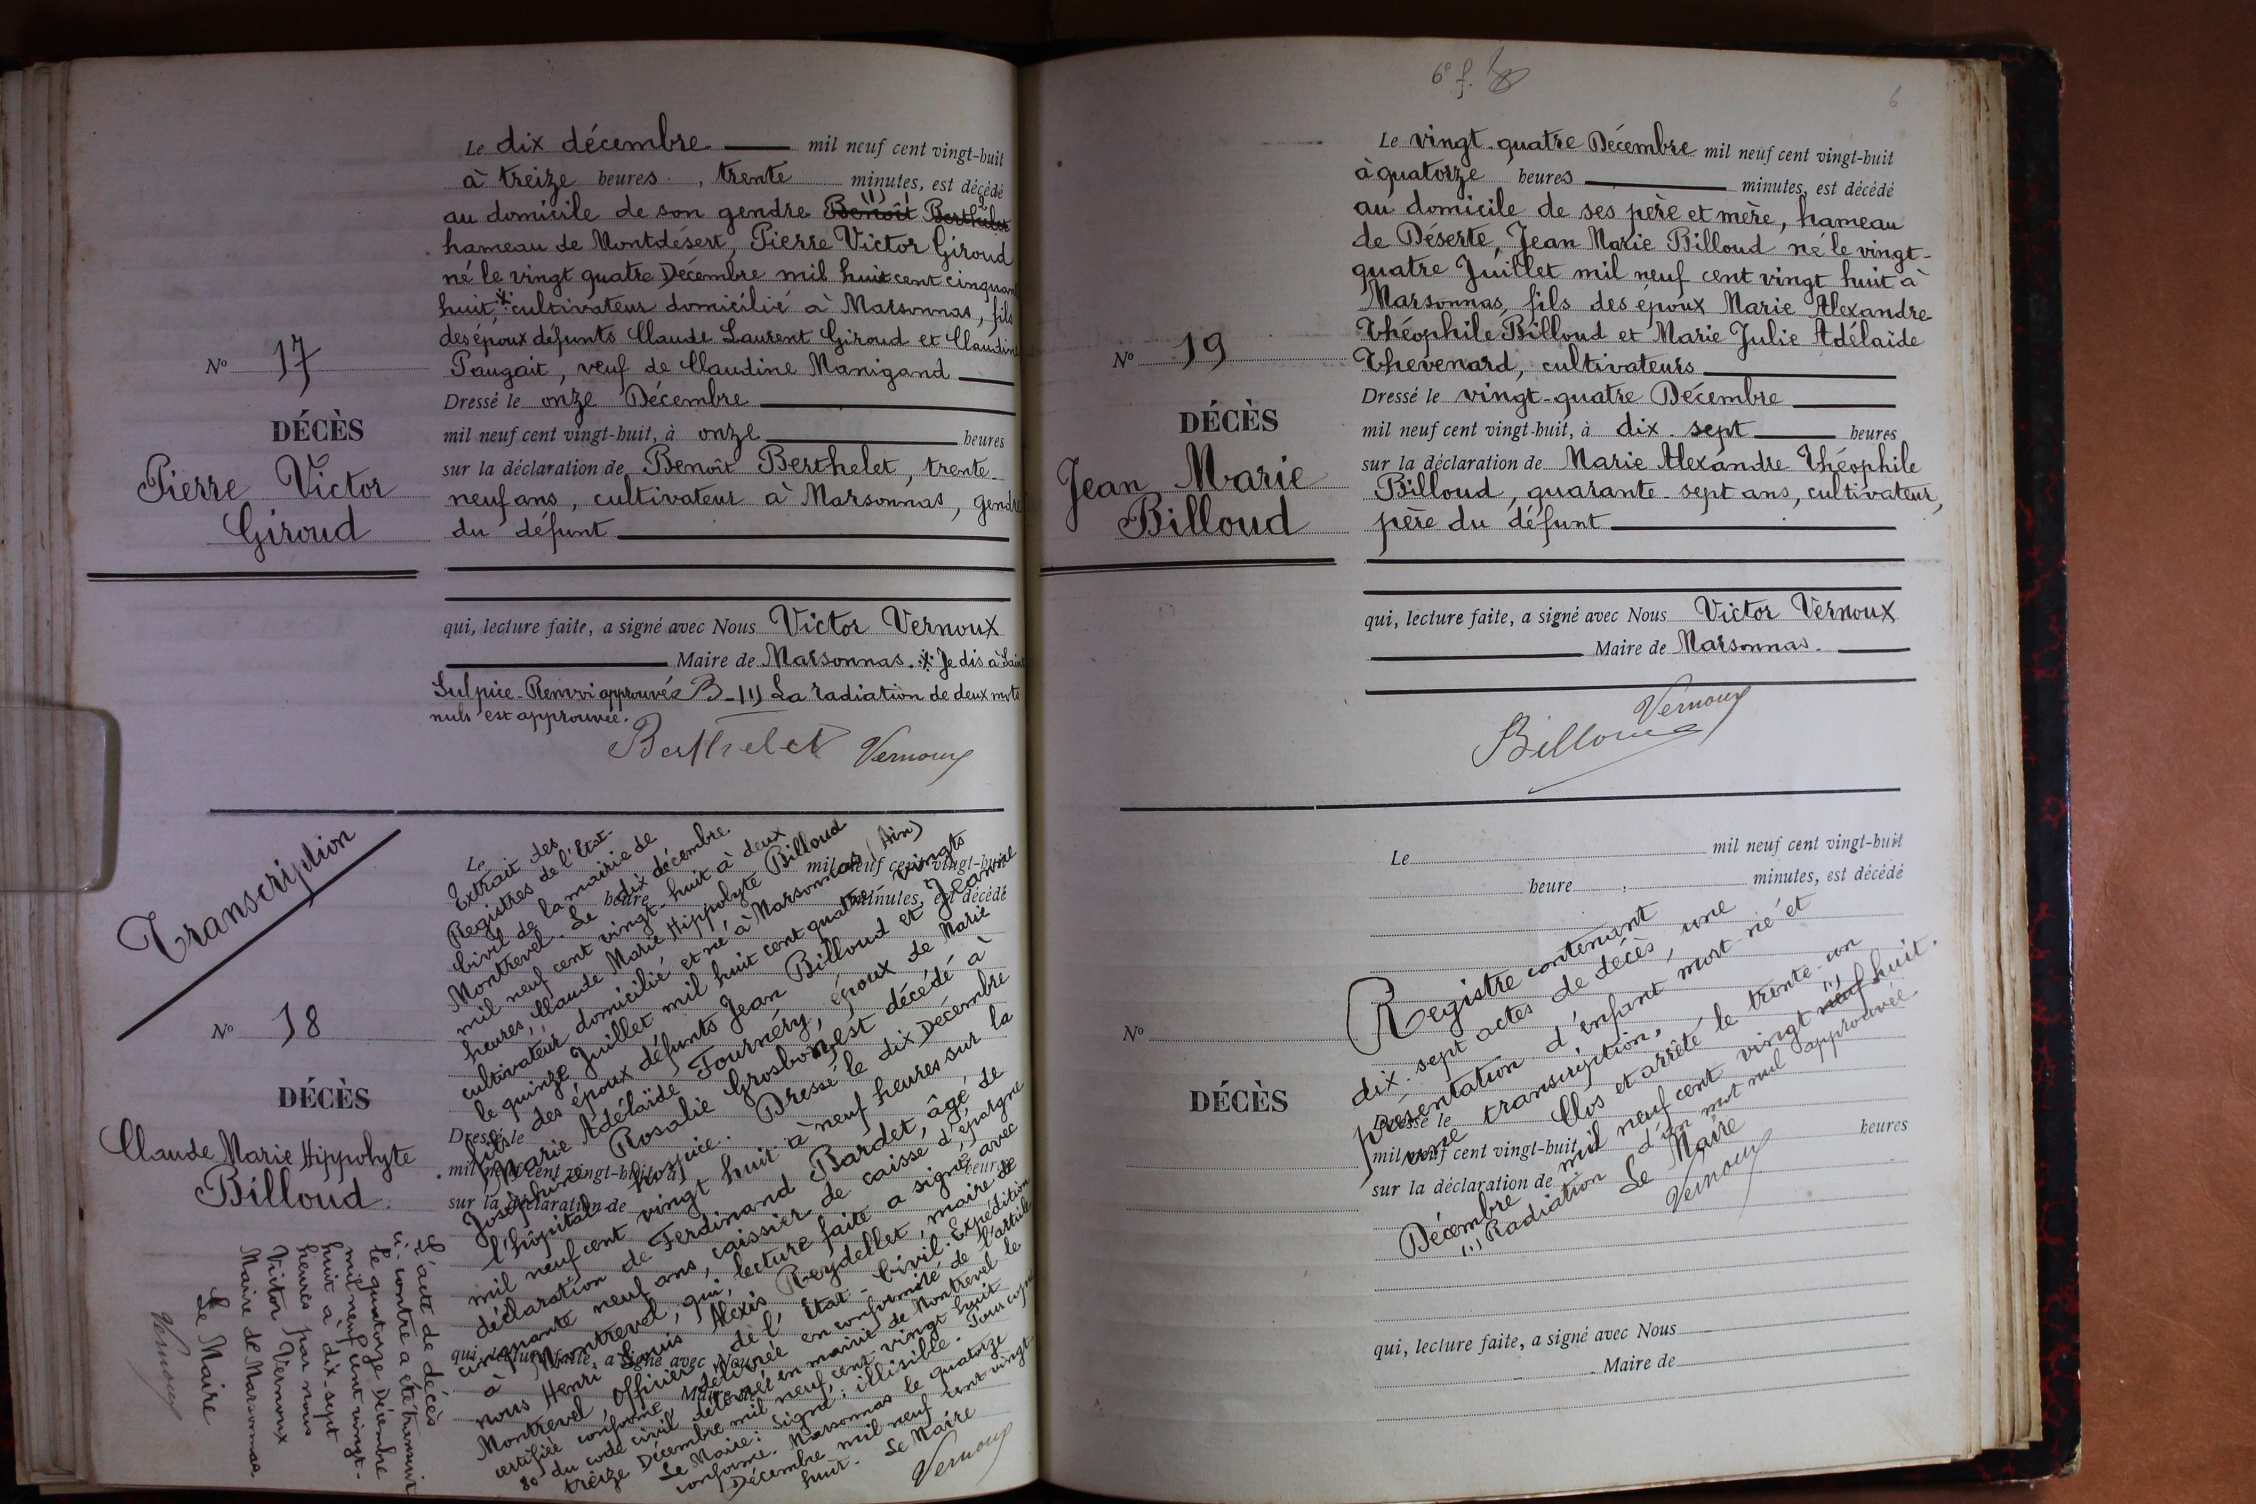 Le dix décembre mil neuf cent vingt-huit
à treize heures, trente minutes, est décédé
(1)
au domicile de son gendre Benoît Berthelet
hameau de Montdésert, Pierre Victor Giroud
né le vingt quatre Décembre mil huit cent cinquante
huit, * cultivateur domicilié à Marsonnas, fils
des époux défunts Claude Laurent Giroud et Claudine
Paugait, veuf de Claudine Manigand
Dressé le onze Décembre
mil neuf cent vingt-huit, à onze heures
sur la déclaration de Benoît Berthelet, trente-
neuf ans, cultivateur à Marsonnas, gendre
du défunt
No 17
DÉCÈS
Pierre Victor
Giroud
qui, lecture faite, a signé avec Nous Victor Vernoux
Maire de Marsonnas. * Je dis à Saint
Sulpice. Renvoi approuvé B (1) La radiation de deux mots
nuls est approuvée.
Berthelet Vernoux
Transcription
No 18
DÉCÈS
Claude Marie Hippolyte
Billoud
Le mil neuf cent vingt-huit
heure minutes, est décédé
Dressé le
mil neuf cent vingt-huit, à heures
sur la déclaration de
qui, lecture faite, a signé avec Nous
Maire de
Extrait des
Registres de l'Etat-
Civil de la mairie de
Montrevel. Le dix décembre
mil neuf cent vingt-huit à deux
heures, Claude Marie Hippolyte Billoud
cultivateur domicilié et né à Marsonnas (Ain)
le quinze Juillet mil huit cent quatre vingts
fils des époux défunts Jean Billoud et Jeanne
Marie Adélaïde Fournéry, époux de Marie
Joséphine Rosalie Grosbon, est décédé à
l'hôpital-hospice. Dressé le dix Décembre
mil neuf cent vingt huit à neuf heures sur la
déclaration de Ferdinand Bardet, âgé de
cinquante neuf ans, caissier de caisse d'épargne
à Montrevel, qui, lecture faite a signé avec
nous Henri Louis Alexis Reydellet, maire de
Montrevel, Officier de l'Etat-Civil. Expédition
certifiée conforme, délivrée en conformité de l'article
80 du code civil en mairie de Montrevel le
treize Décembre mil neuf cent vingt huit
Le Maire: Signé: illisible. Pour copie
conforme. Marsonnas le quatorze
Décembre mil neuf cent vingt
huit. Le Maire
Vernoux
L'acte de décès
ci-contre a été transcrit
le quatorze Décembre
mil neuf cent vingt-
huit à dix-sept
heures par nous
Victor Vernoux
Maire de Marsonnas
Le Maire
Vernoux
6e f.
6
Le vingt-quatre Décembre mil neuf cent vingt-huit
à quatorze heures minutes, est décédé
au domicile de ses père et mère, hameau
de Déserte, Jean Marie Billoud né le vingt-
quatre Juillet mil neuf cent vingt huit à
Marsonnas, fils des époux Marie Alexandre
Théophile Billoud et Marie Julie Adélaïde
Thevenard, cultivateurs
Dressé le vingt-quatre Décembre
mil neuf cent vingt-huit, à dix-sept heures
sur la déclaration de Marie Alexandre Théophile
Billoud, quarante-sept ans, cultivateur,
père du défunt
No 19
DÉCÈS
Jean Marie
Billoud
qui, lecture faite, a signé avec Nous Victor Vernoux
Maire de Marsonnas.
Billoud Vernoux
Le mil neuf cent vingt-huit
heure, minutes, est décédé
No
DÉCÈS
Dressé le
mil neuf cent vingt-huit, heures
sur la déclaration de
Registre contenant
dix-sept actes de décès, une
présentation d'enfant mort-né et
une transcription.
Clos et arrêté le trente-un
Décembre mil neuf cent vingt neuf (1) huit.
(1) Radiation d'un mot nul approuvée.
Le Maire
Vernoux
qui, lecture faite, a signé avec Nous
Maire de